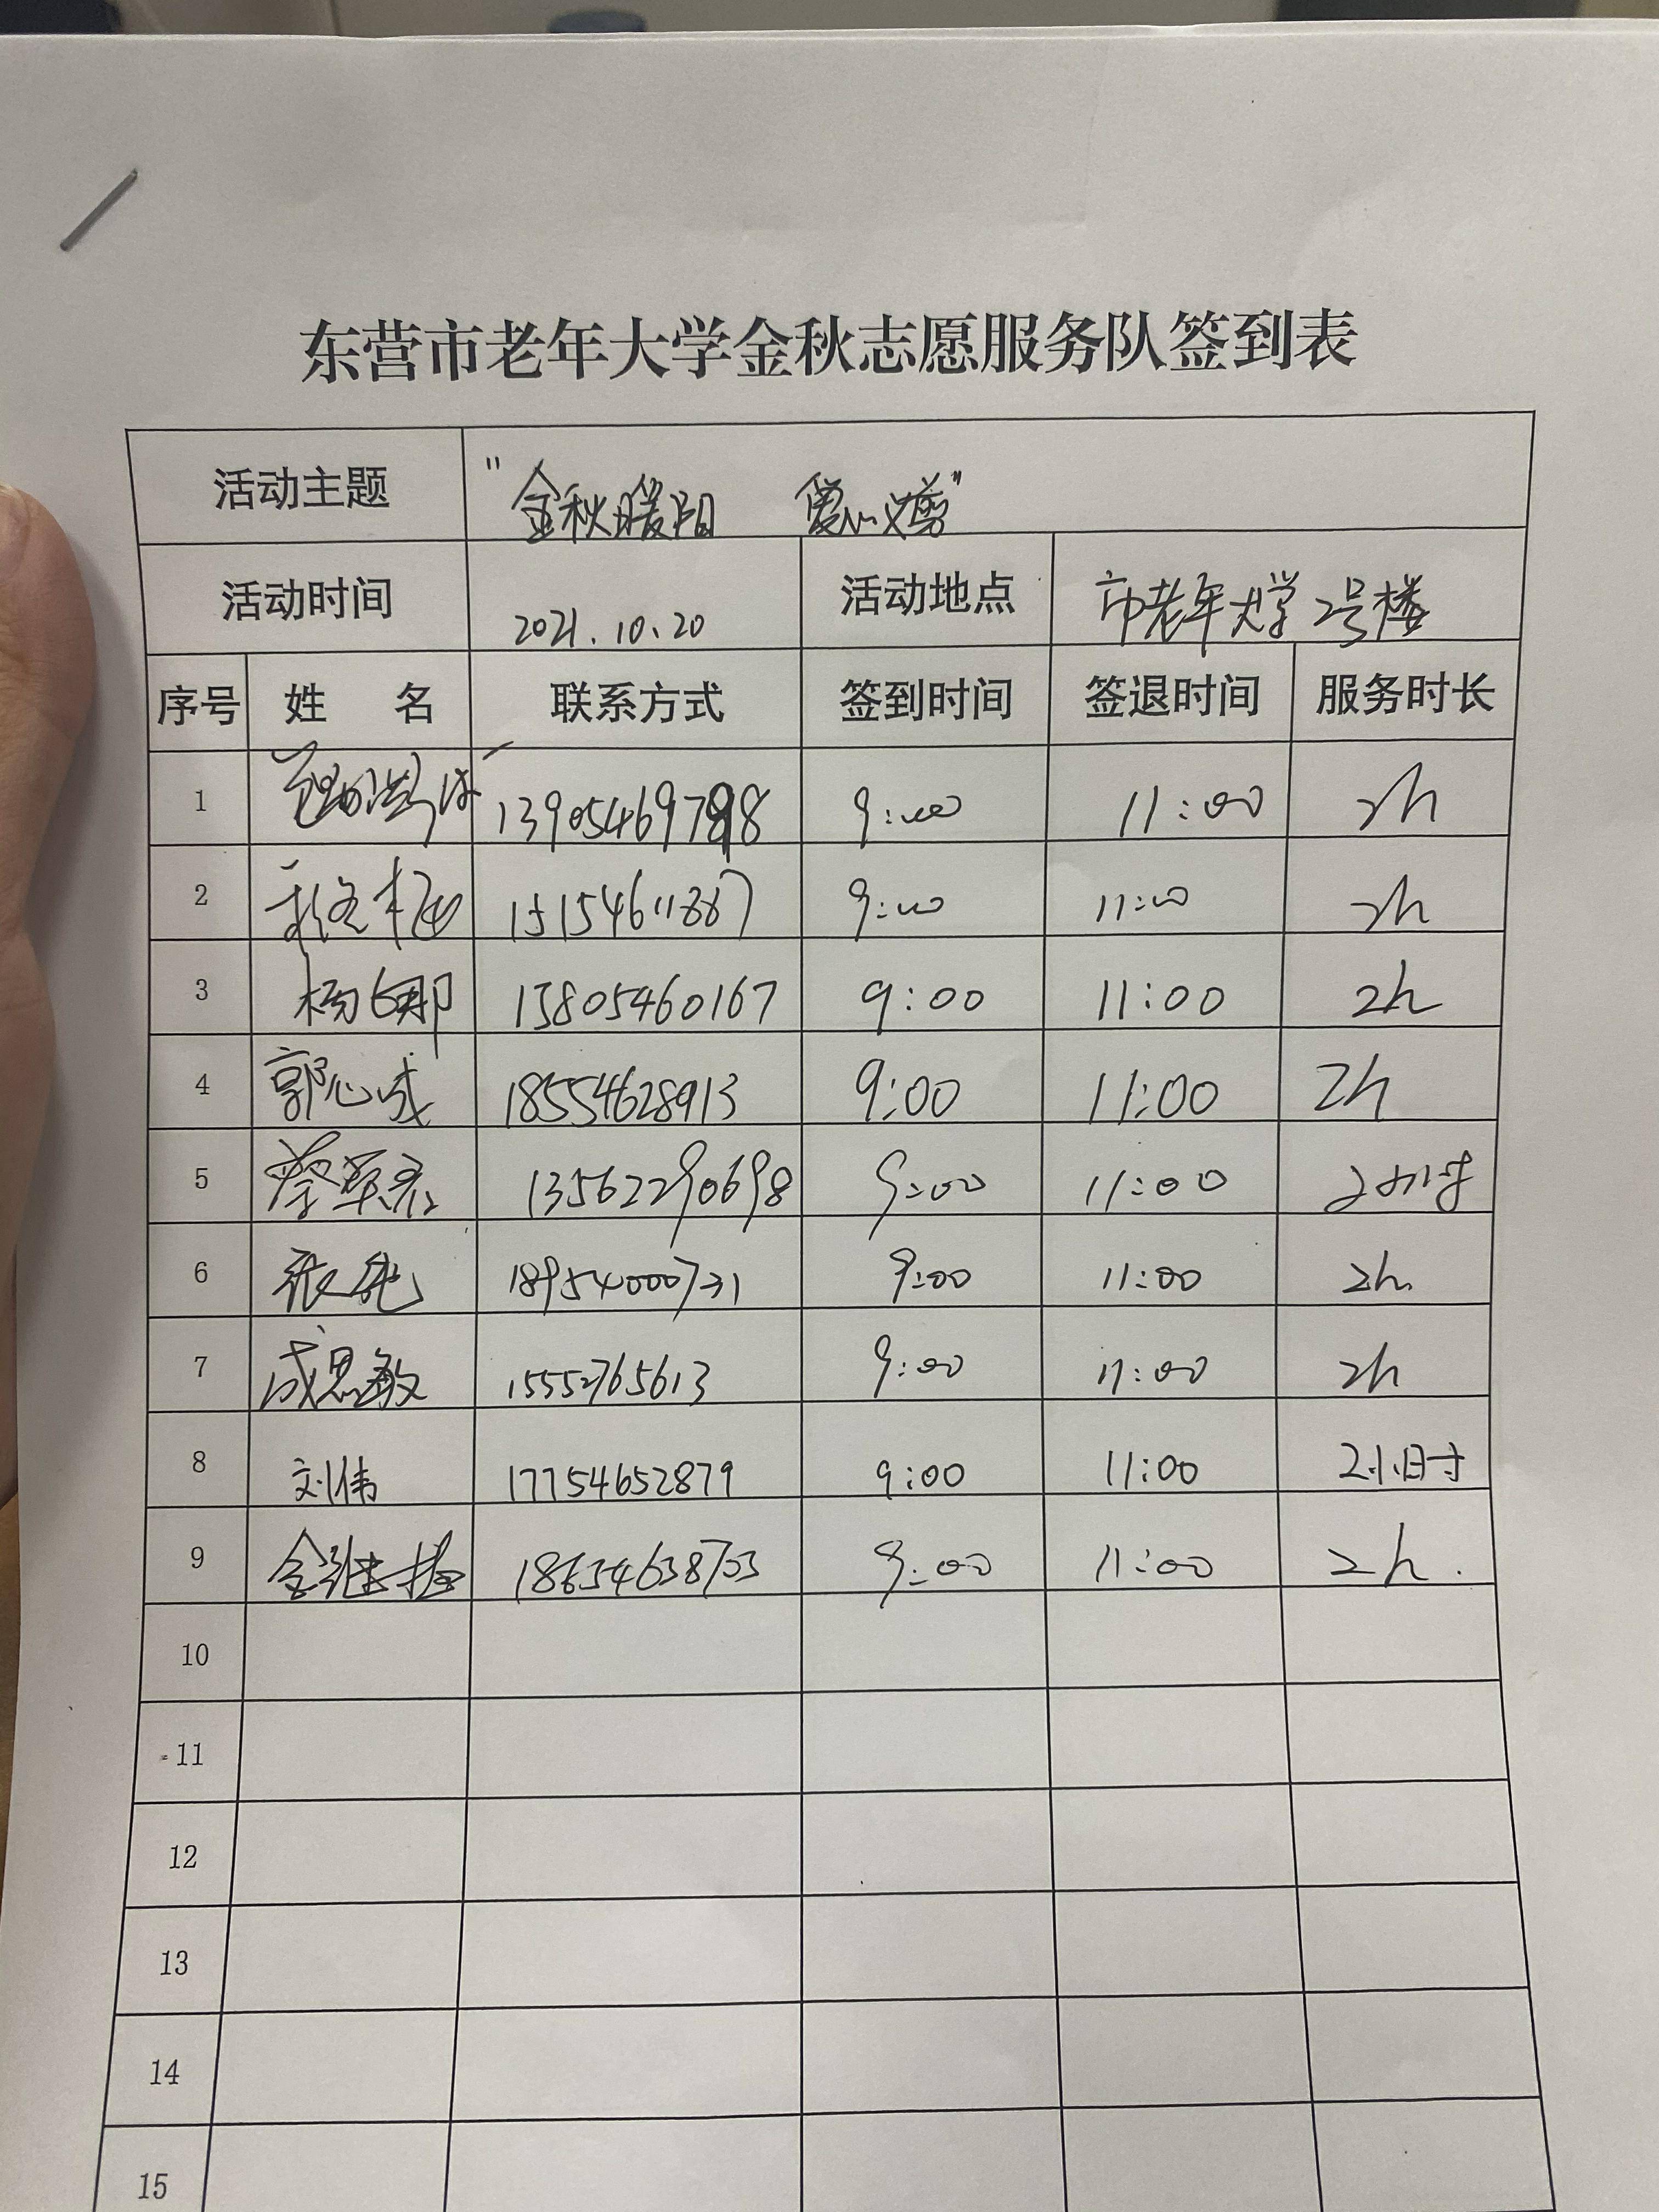 东营市老年大学金秋志愿服务队签到表
活动主题 "金秋暖阳 爱心义剪"
活动时间 2021.10.20 活动地点 市老年大学2号楼
序号 姓名 联系方式 签到时间 签退时间 服务时长
1 9:00 11:00 2h
2 15154611887 9:00 11:00 2h
3 杨娜 15805460167 9:00 11:00 2h
4 郭心成 18554628913 9:00 11:00 2h
5 13562290698 9:00 11:00 2小时
6 张艳 18954000731 9:00 11:00 2h.
7 成思敏 15552765613 9:00 11:00 2h
8 刘伟 17754652879 9:00 11:00 2小时
9 18654638703 9:00 11:00 2h.
10
11
12
13
14
15